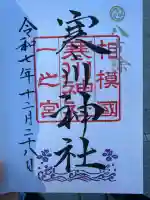 相模國
寒川神社
一之宮
令和七年十二月二十八日